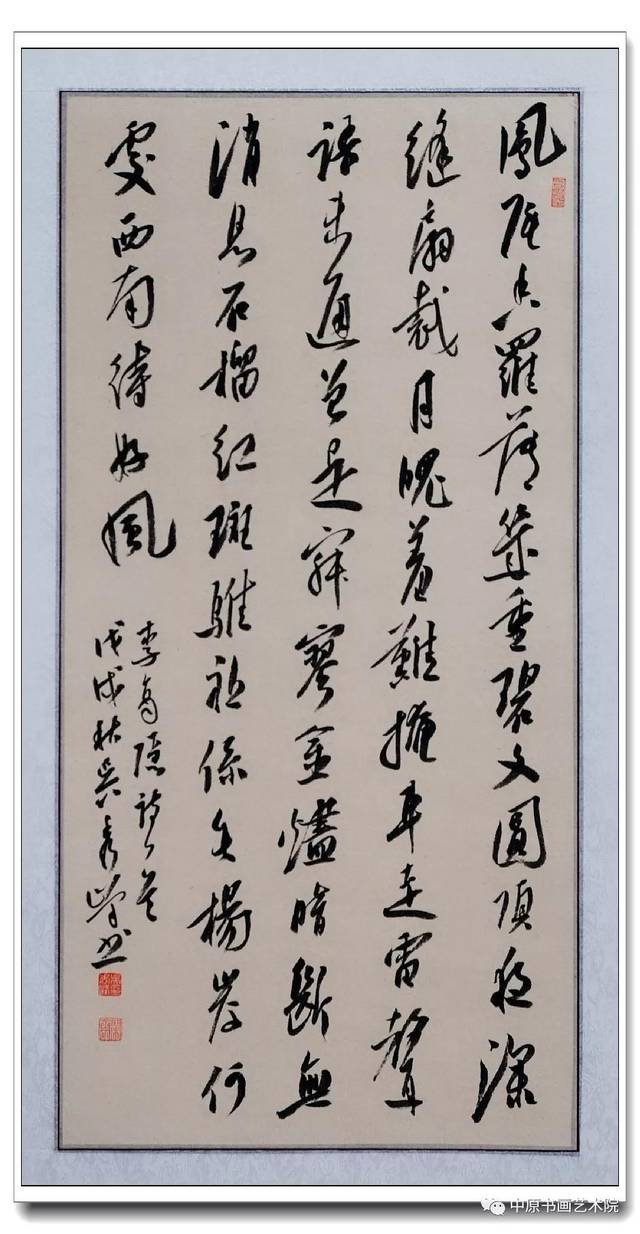 鳳尾香羅薄幾重碧文圓頂夜深
縫扇裁月魄羞難掩車走雷聲
語未通曾是寂寥金燼暗斷無
消息石榴紅斑騅祇係垂楊岸何
處西南待好風
李商隱詩一首
戊戌秋吳秀書
中原书画艺术院